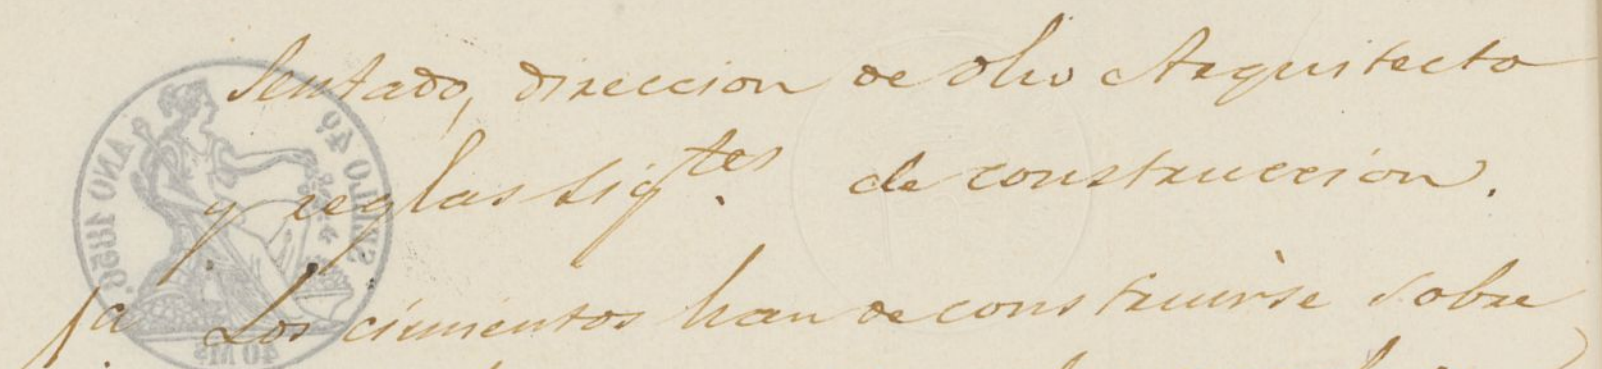 sentado, direccion de dho Arquitecto
y reglas sigtes. de construccion.
1a Los cimientos han de construirse sobre
SELLO 4º
AÑO 1856.
40 Ms